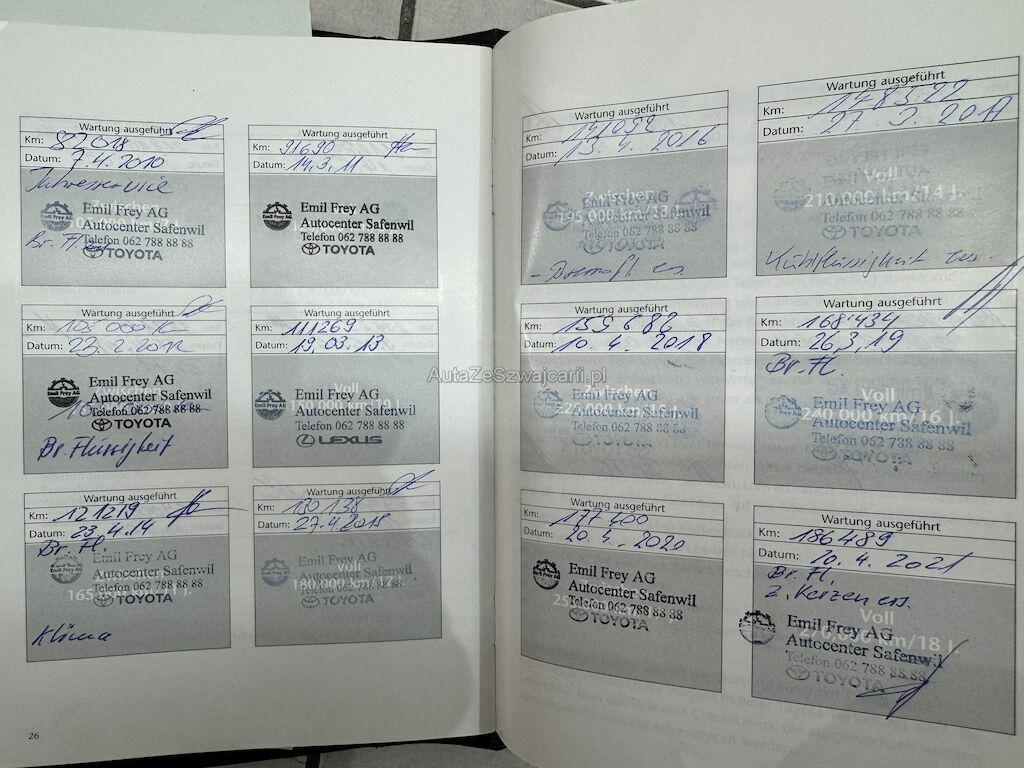 Wartung ausgeführt
Km: 82018
Datum: 7.4.2010
Jahresservice
Emil Frey AG
Autocenter Safenwil
Telefon 062 788 88 88
Br. Fl.
TOYOTA
Wartung ausgeführt
Km: 91690
Datum: 14.3.11
Emil Frey AG
Autocenter Safenwil
Telefon 062 788 88 88
TOYOTA
Wartung ausgeführt
Km:
Datum: 23.2.2012
Emil Frey AG
Autocenter Safenwil
Telefon 062 788 88 88
TOYOTA
Br. Flüssigkeit
Wartung ausgeführt
Km: 111269
Datum: 19.03.13
Voll
Emil Frey AG
Autocenter Safenwil
Telefon 062 788 88 88
LEXUS
Wartung ausgeführt
Km: 121219
Datum: 23.4.14
Br. Fl.
Emil Frey AG
Autocenter Safenwil
Telefon 062 788 88 88
TOYOTA
Klima
Wartung ausgeführt
Km: 130138
Datum: 27.4.2015
Voll
Emil Frey AG
Autocenter Safenwil
180.000 km
Telefon 062 788 88 88
TOYOTA
26
Wartung ausgeführt
Km: 141092
Datum: 13.4.2016
Zwischen
Emil Frey AG
195.000 km/13 J.
Autocenter Safenwil
Telefon 062 788 88 88
TOYOTA
Wartung ausgeführt
Km: 148522
Datum: 27.3.2017
Voll
210.000 km/14 J.
Telefon 062 788 88 88
TOYOTA
Kühlflüssigkeit ers.
Wartung ausgeführt
Km:
Datum: 10.4.2018
Zwischen
Emil Frey AG
225.000 km/15 J.
Autocenter Safenwil
Telefon 062 788 88 88
TOYOTA
Wartung ausgeführt
Km: 168'434
Datum: 26.3.19
Br. Fl.
Voll
Emil Frey AG
240.000 km/16 J.
Autocenter Safenwil
Telefon 062 788 88 88
TOYOTA
Wartung ausgeführt
Km: 177400
Datum: 20.4.2020
Emil Frey AG
Autocenter Safenwil
Telefon 062 788 88 88
TOYOTA
Wartung ausgeführt
Km: 186489
Datum: 10.4.2021
Br. Fl.
Z. Kerzen ers.
Voll
Emil Frey AG
270.000 km/18 J.
Autocenter Safenwil
Telefon 062 788 88 88
TOYOTA
AutaZeSzwajcarii.pl